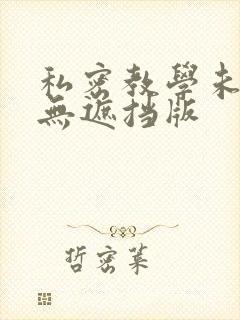 私密教學未
無遮挡版
哲密菜